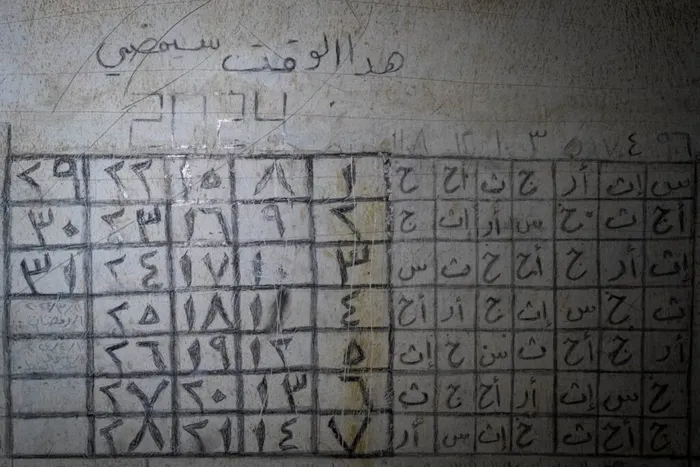 هذا الوقت سيمضي
2024
٤ ٣
س إث أر ج ث أح خ ١ ٨ ١٥ ٢٢ ٢٩
أح ث خ س أر إث ج ٢ ٩ ١٦ ٢٣ ٣٠
إث أر ج أح خ ث س ٣ ١٠ ١٧ ٢٤ ٣١
ث خ س إث ج أر أح ٤ ١١ ١٨ ٢٥
أر ج أح ث س خ إث ٥ ١٢ ١٩ ٢٦
خ س إث أر أح ج ث ٦ ١٣ ٢٠ ٢٧
ج أح ث خ إث س أر ٧ ١٤ ٢١ ٢٨